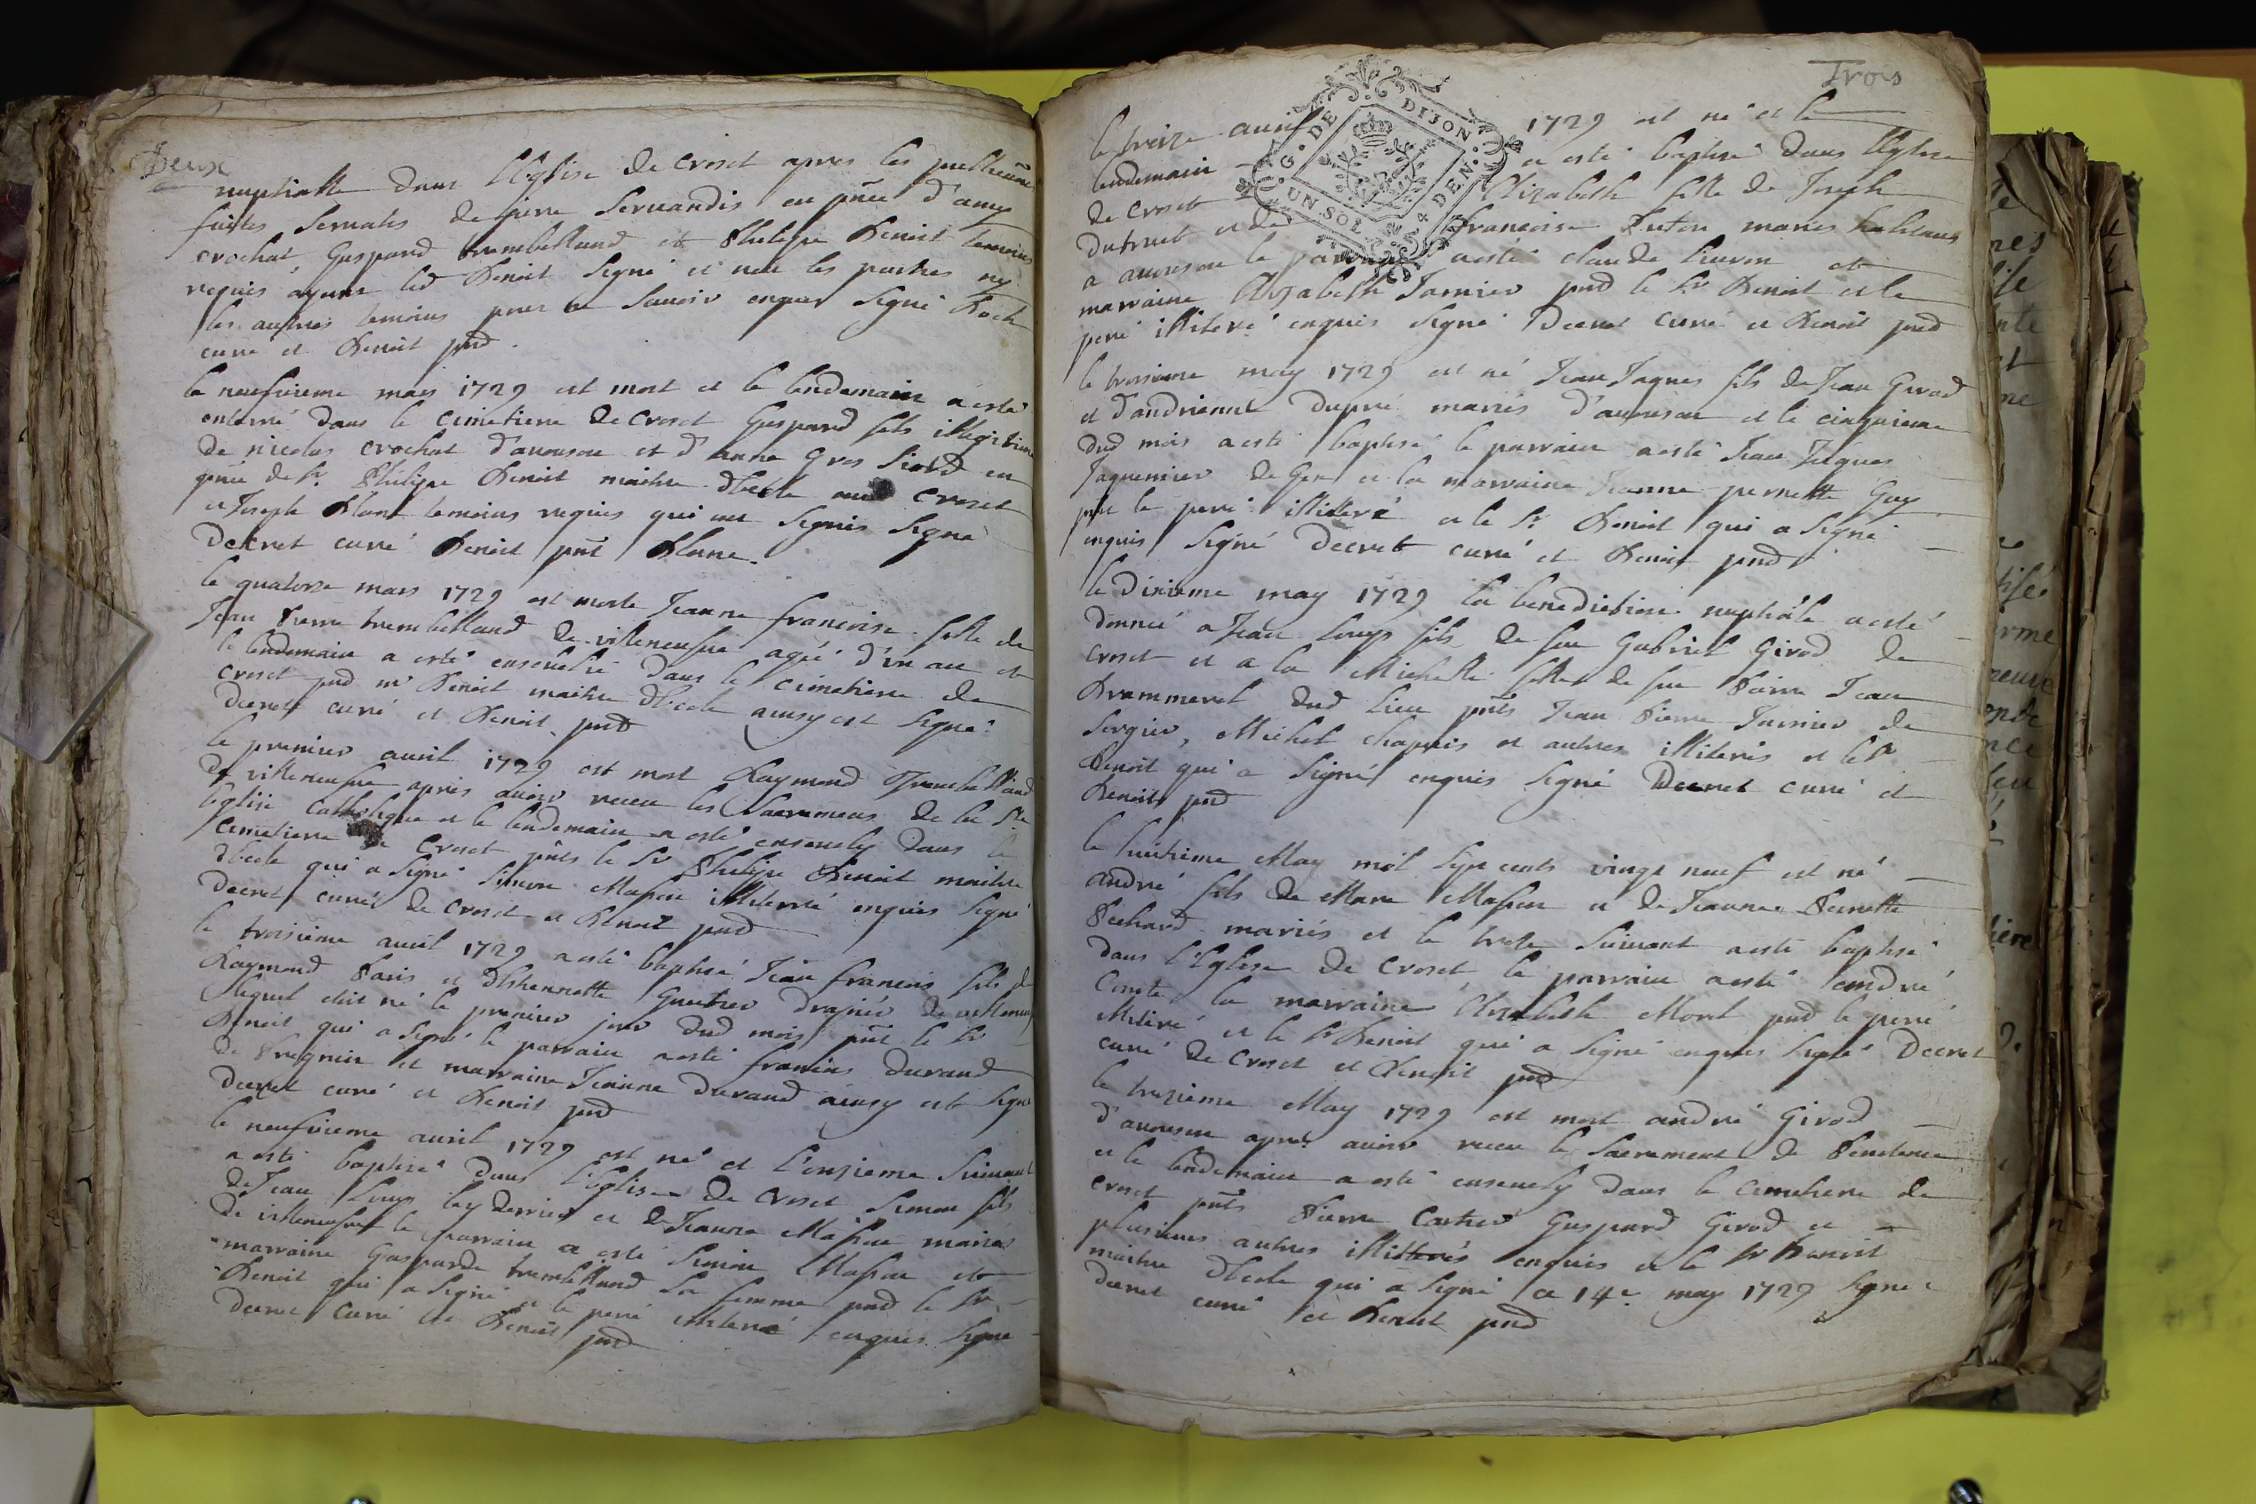 Deux
nuptialle dans l'Eglise de Croset apres les publications
faites Servatis de jure Servandis en pñce d'amy
crochat, Gaspard trembelland et Philipe Benoit temoins
requis ayant led Benoit signé et non les parties ny
les autres temoins pour ne savoir enquis signé
curé et Benoit pnt.
le neufvieme mars 1729 est mort et le lendemain a esté
enterré dans le Cimetiere de Croset Gaspard fils illegitime
de nicolas crochat d'avouson et d'anne Gros en
pñce de Sr. Philipe Benoit maitre d'Ecole Croset
et Joseph Blanc temoins requis qui ont signés signé
Decret curé Benoit pnt Blanc.
le quatorze mars 1729 est morte Jeanne francoise fille de
Jean Pierre trembelland de villeneufve agée d'un an et
le lendemain a esté ensevelie dans le cimetiere de
croset pnt mr Benoit maitre d'Ecole ainsy est signé
Decret curé et Benoit pnt
le premier avril 1729 est mort Raymond Trembelland
de villeneufve apres avoir receu les Sacremens de la Ste
Eglise Catholique et le lendemain a esté ensevely dans le
cemetiere de Croset pñts le Sr Philipe Benoit maitre
d'Ecole qui a signé Simon Masson illiterré enquis signé
Decret curé de Croset et Benoit pnt
le troisieme avril 1729 a esté baptisé Jean francois fils de
Raymond Paris et d'Estiennette de villeneufve
lequel etoit né le premier jour dud mois pnt le Sr
Benoit qui a signé le parrain a esté francois Durand
de Pregnin et marraine Jeanne Durand ainsy est signé
Decret curé et Benoit pnt
le neufvieme avril 1729 est né et l'onzieme suivant
a esté baptisé dans l'Eglise de Croset Simon fils
de Jean Louys et de Jeanne Masson mariés
de villeneufve le parrain a esté Simon Masson et
marraine Gasparde trembelland sa femme pnd le Sr
Benoit qui a signé et le peré illiteré enquis signé
Decret curé et Benoit pnd
Trois
G. DE DIJON
UN SOL 4 DEN.
le treize avril 1729 est né et le
lendemain a esté baptisé dans l'Eglise
de Croset Elizabeth fille de Joseph
Dutruet et de francoise Duton mariés habitans
a avouson le parrain a esté claude et
marraine Elizabeth Tarnier pnd le Sr Benoit et le
peré illiteré enquis signé Decret curé et Benoit pnd
le troisieme may 1729 est né Jean Jaques fils de Jean Girod
et d'andrienne Dupré mariés d'avouson et le cinquieme
dud mois a esté baptisé le parrain a esté Jean Jaques
Jaquemier de Gex et la marraine Jeanne pernette Gay
pnt le peré illiteré et le Sr. Benoit qui a signé
enquis signé Decret curé et Benoit pnd
le dixieme may 1729 la benediction nuptiale a esté
donnée a Jean Louys fils de feu Gabriel Girod de
croset et a la Michelle fille de feu Pierre Jean
Drammeret dud lieu pñts Jean Pierre Tarnier de
Sergier, Michel Chapuis et autres illiterés et le Sr
Benoit qui a signé enquis signé Decret curé et
Benoit pnd
le huitieme May mil sept cents vingt neuf est né
andré fils de Marc Masson et de Jeanne Pernette
Pechard mariés et le treze suivant a esté baptisé
dans l'Eglise de Croset le parrain a esté andré
Comte la marraine Elizabeth Morel pnd le peré
illiteré et le Sr Benoit qui a signé enquis signé Decret
curé de Croset et Benoit pnd
le trezieme May 1729 est mort andré Girod
d'avouson apres avoir receu le Sacrement de Penitence
et le lendemain a esté ensevely dans le cemetiere de
croset pñts Pierre Cartier Gaspard Girod et
plusieurs autres illiterés enquis et le Sr Benoit
maitre d'Ecole qui a signé ce 14e may 1729 signé
Decret curé et Benoit pnd